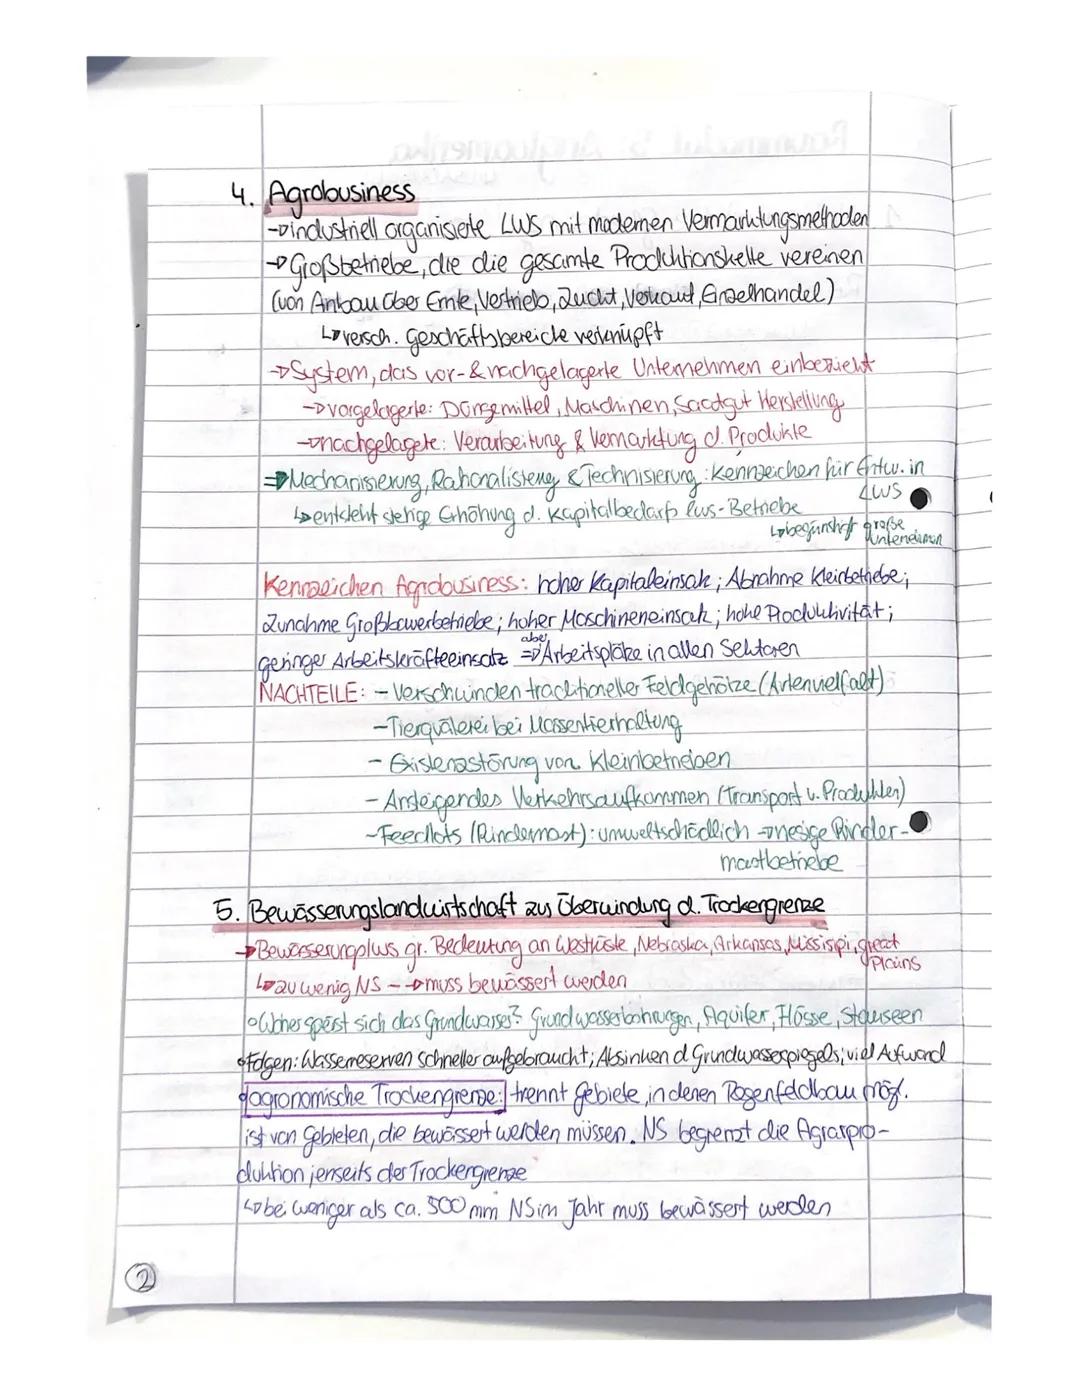 4. Agrobusiness
→ industriell organisierte LWS mit modernen Vermarktungsmethoden
→ Großbetriebe, die die gesamte Produktionskette vereinen
(von Anbau über Ernte, Vertrieb, Zucht, Verkauf, Einzelhandel)
↳ versch. Geschäftsbereiche verknüpft
→ System, das vor- & nachgelagerte Unternehmen einbezieht
→ vorgelagerte: Düngemittel, Maschinen, Saatgut Herstellung
→ nachgelagerte: Verarbeitung & Vermarktung d. Produkte
⇒ Mechanisierung, Rationalisierung & Technisierung: Kennzeichen für Entw. in LWS
↳ entsteht stetige Erhöhung d. Kapitalbedarfs lws-Betriebe
↳ begünstigt große Unternehmen
Kennzeichen Agrobusiness: hoher Kapitaleinsatz; Abnahme Kleinbetriebe;
Zunahme Großbauerbetriebe; hoher Maschineneinsatz; hohe Produktivität;
geringer Arbeitskräfteeinsatz aber ⇒ Arbeitsplätze in allen Sektoren
NACHTEILE: - Verschwinden traditioneller Feldgehölze (Artenvielfalt)
- Tierquälerei bei Massentierhaltung
- Existenzstörung von Kleinbetrieben
- Ansteigendes Verkehrsaufkommen (Transport v. Produkten)
- Feedlots (Rindermast): umweltschädlich → riesige Rinder-
mastbetriebe
5. Bewässerungslandwirtschaft zus Überwindung d. Trockengrenze
→ Bewässerungslws gr. Bedeutung an Westküste, Nebraska, Arkansas, Missisipi, great Plains
↳ zu wenig NS --→ muss bewässert werden
Woher speist sich das Grundwasser? Grundwasserbohrungen, Aquifer, Flüsse, Stauseen
Folgen: Wasserreserven schneller aufgebraucht; Absinken d Grundwasserpiegels; viel Aufwand
agronomische Trockengrenze: trennt Gebiete, in denen Regenfeldbau mög.
ist von Gebieten, die bewässert werden müssen. NS begrenzt die Agrarpro-
duktion jenseits der Trockengrenze
↳ bei weniger als ca. 500 mm NS im Jahr muss bewässert werden
2